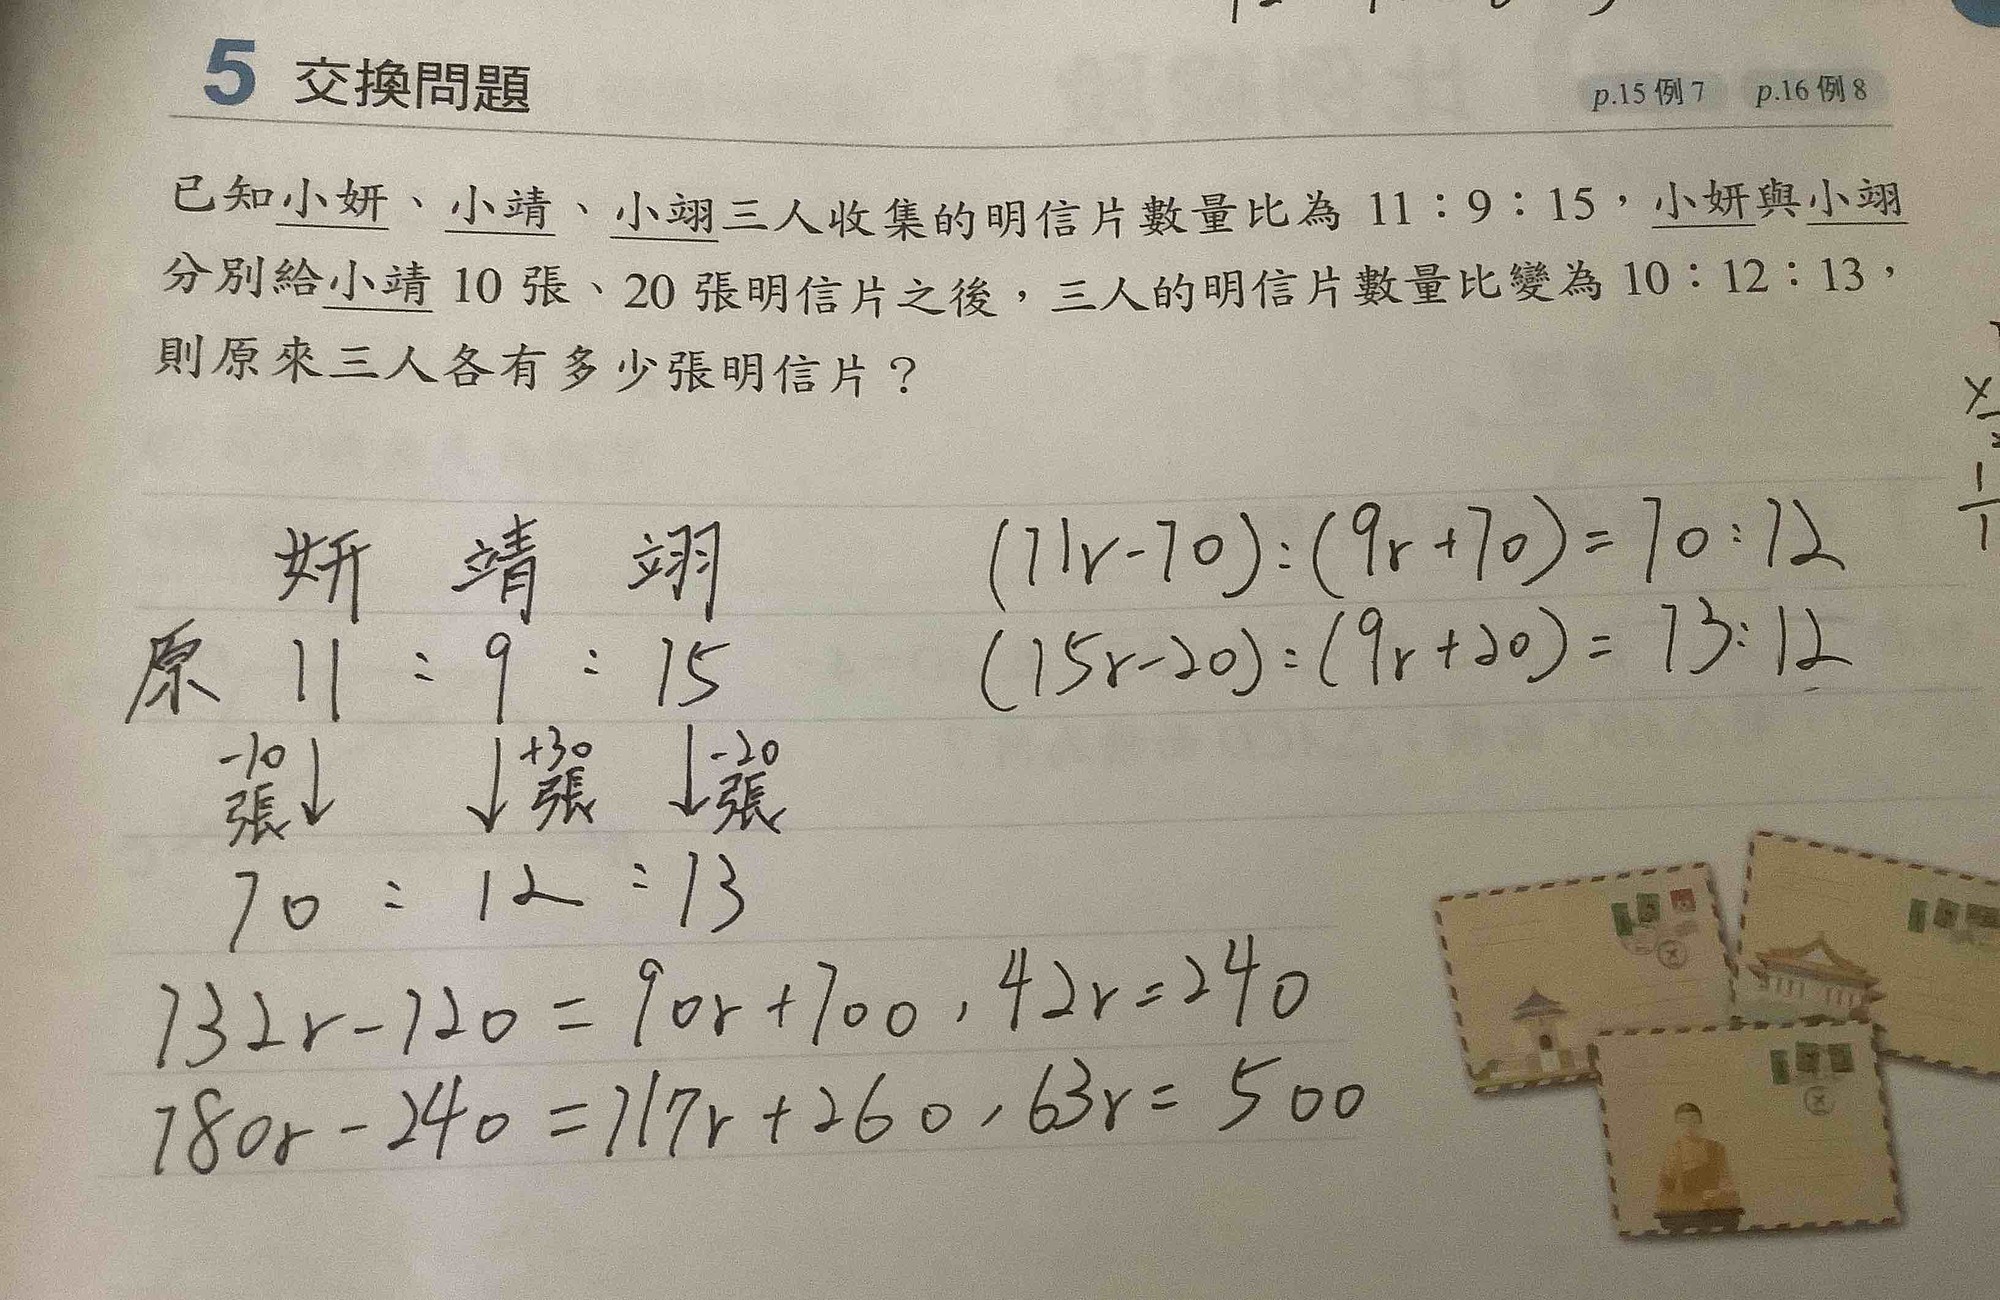 5 交換問題
p.15 例 7 p.16 例 8
已知小妍、小靖、小翊三人收集的明信片數量比為 11：9：15，小妍與小翊
分別給小靖 10 張、20 張明信片之後，三人的明信片數量比變為 10：12：13，
則原來三人各有多少張明信片？
妍 靖 翊
原 11 : 9 : 15
-10張↓ ↓+30張 ↓-20張
10 : 12 : 13
(11r-10):(9r+10)=10:12
(15r-20):(9r+20)=13:12
132r-120=90r+100,42r=240
180r-240=117r+260,63r=500